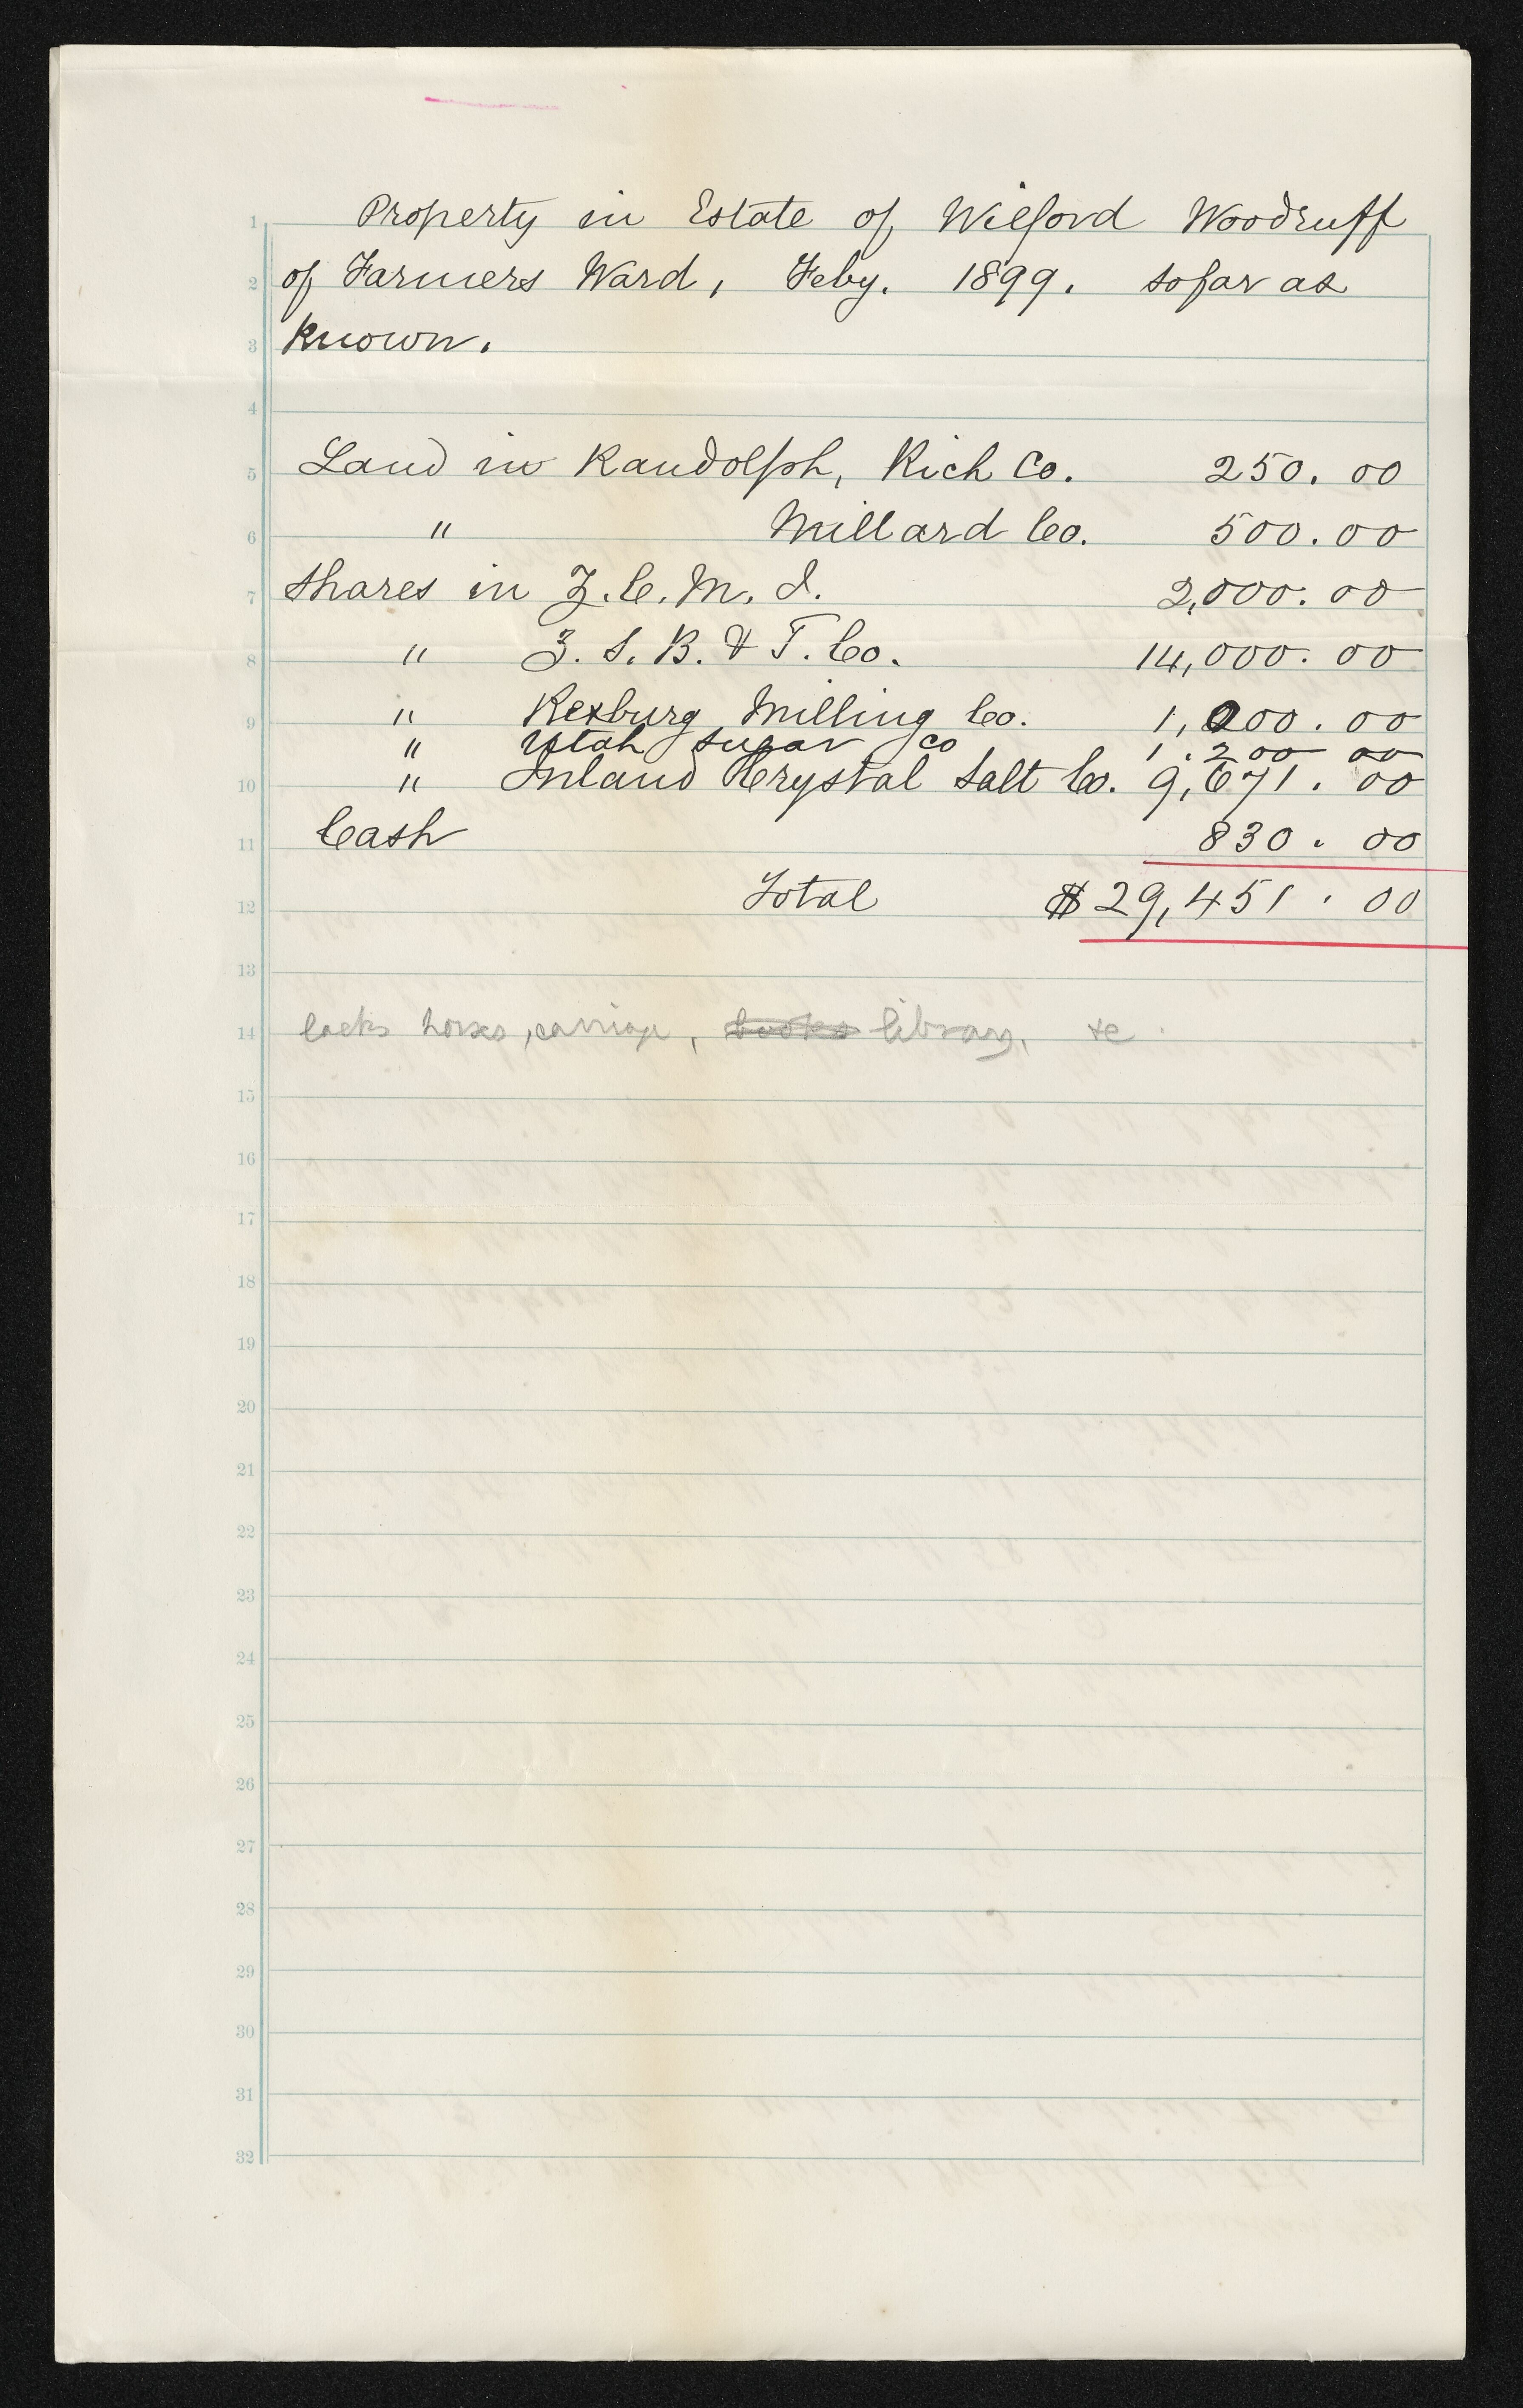 1 Property in Estate of Wilford Woodruff
2 of Farmers Ward, Feby. 1899. so far as
3 Known.
4
5 Land in Randolph, Rich Co. 250.00
6 " Millard Co. 500.00
7 Shares in Z.C.M.I. 2,000.00
8 " Z.S.B. & T. Co. 14,000.00
9 " Rexburg Milling Co. 1,000.00
" Utah Sugar Co 1.200 00
10 " Inland Crystal Salt Co. 9,671.00
11 Cash 830.00
12 Total $29,451.00
13
14 lacks horses, carriage, books library, &c.
15
16
17
18
19
20
21
22
23
24
25
26
27
28
29
30
31
32